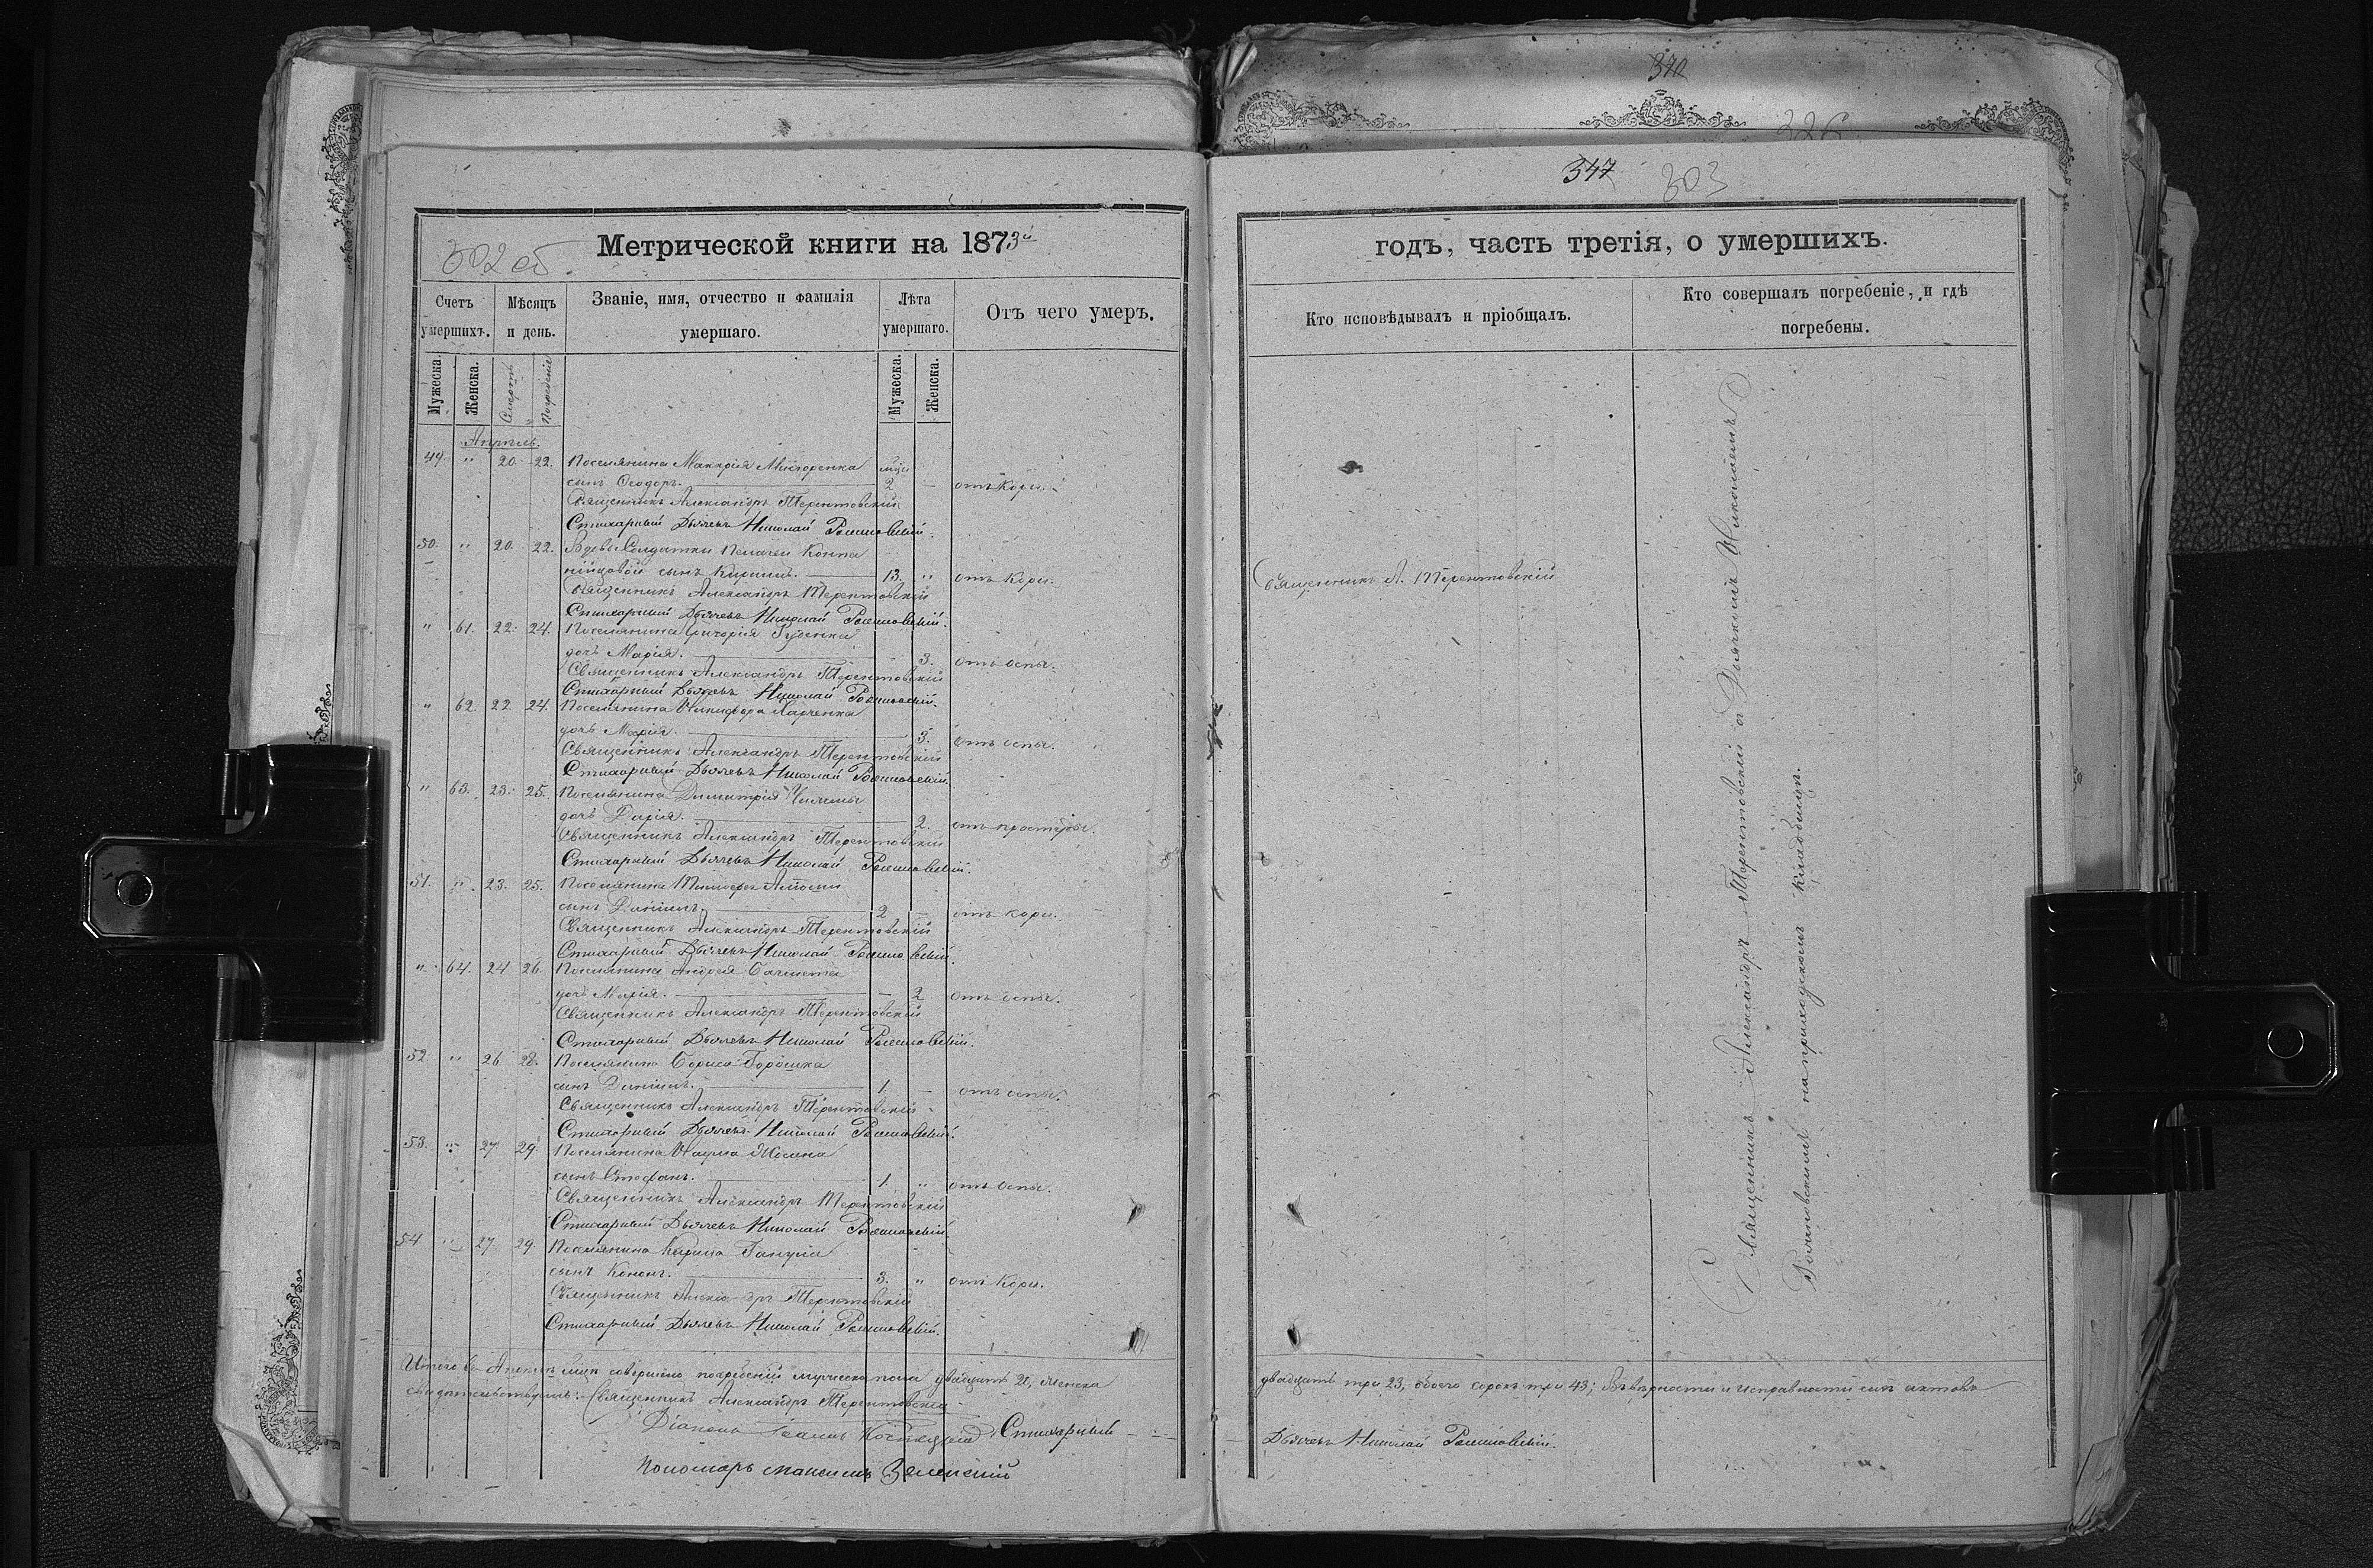 340
226
347 303
302 об.
Метрической книги на 1873й
годъ, часть третія, о умершихъ.
Счетъ умершихъ.
Мѣсяцъ и день.
Званіе, имя, отчество и фамилія умершаго.
Лѣта умершаго.
Отъ чего умеръ.
Кто исповѣдывалъ и пріобщалъ.
Кто совершалъ погребеніе, и гдѣ погребены.
Мужеска.
Женска.
Смерть
Погребеніе
Мужеска.
Женска.
Апрѣль.
49. " 20. 22. Поселянина Макарія
сынъ Ѳеодоръ. 2 отъ кори.
Священникъ Александръ Терентовскій
Стихарный Дьячекъ Николай
50. " 20. 22. Вдовы Солдатки Пелагеи
сынъ Кириллъ. 13. " отъ кори.
Священникъ Александръ Терентовскій
Стихарный Дьячекъ Николай
Священникъ А. Терентовскій
" 61. 22. 24. Поселянина Григорія Гуденка
дочь Марія. 3. отъ оспы.
Священникъ Александръ Терентовскій
Стихарный Дьячекъ Николай
" 62. 22 24. Поселянина Никифора Харченка
дочь Марія. 3. отъ оспы.
Священникъ Александръ Терентовскій
Стихарный Дьячекъ Николай
" 63. 23. 25. Поселянина Димитрія
дочь Дарія. 2. отъ простуды.
Священникъ Александръ Терентовскій
Стихарный Дьячекъ Николай
51. " 23. 25. Поселянина
сынъ Даніилъ. 2 отъ кори.
Священникъ Александръ Терентовскій
Стихарный Дьячекъ Николай
" 64. 24 26. Поселянина Андрея
дочь Марія. 2 отъ оспы.
Священникъ Александръ Терентовскій
Стихарный Дьячекъ Николай
52 " 26 28. Поселянина Бориса Горошка
сынъ Даніилъ. 1. отъ оспы.
Священникъ Александръ Терентовскій
Стихарный Дьячекъ Николай
53. " 27. 29. Поселянина Наума
сынъ Стефанъ. 1. " отъ оспы.
Священникъ Александръ Терентовскій
Стихарный Дьячекъ Николай
54 " 27. 29. Поселянина
сынъ Кононъ. 3. " отъ кори.
Священникъ Александръ Терентовскій
Стихарный Дьячекъ Николай
Священникъ Александръ Терентовскій с Дьячкомъ Николаемъ
на приходскомъ кладбищѣ.
Итого въ Апрѣлѣ м̃цѣ совершено погребеній мужеска пола двадцать 20, женска
двадцать три 23, обоего сорокъ три 43; въ вѣрности и исправности сихъ актовъ
свидѣтельствуемъ: Священникъ Александръ Терентовскій
Діаконъ Іоаннъ Стихарный
Дьячекъ Николай
Пономарь Максимъ Зеленскій